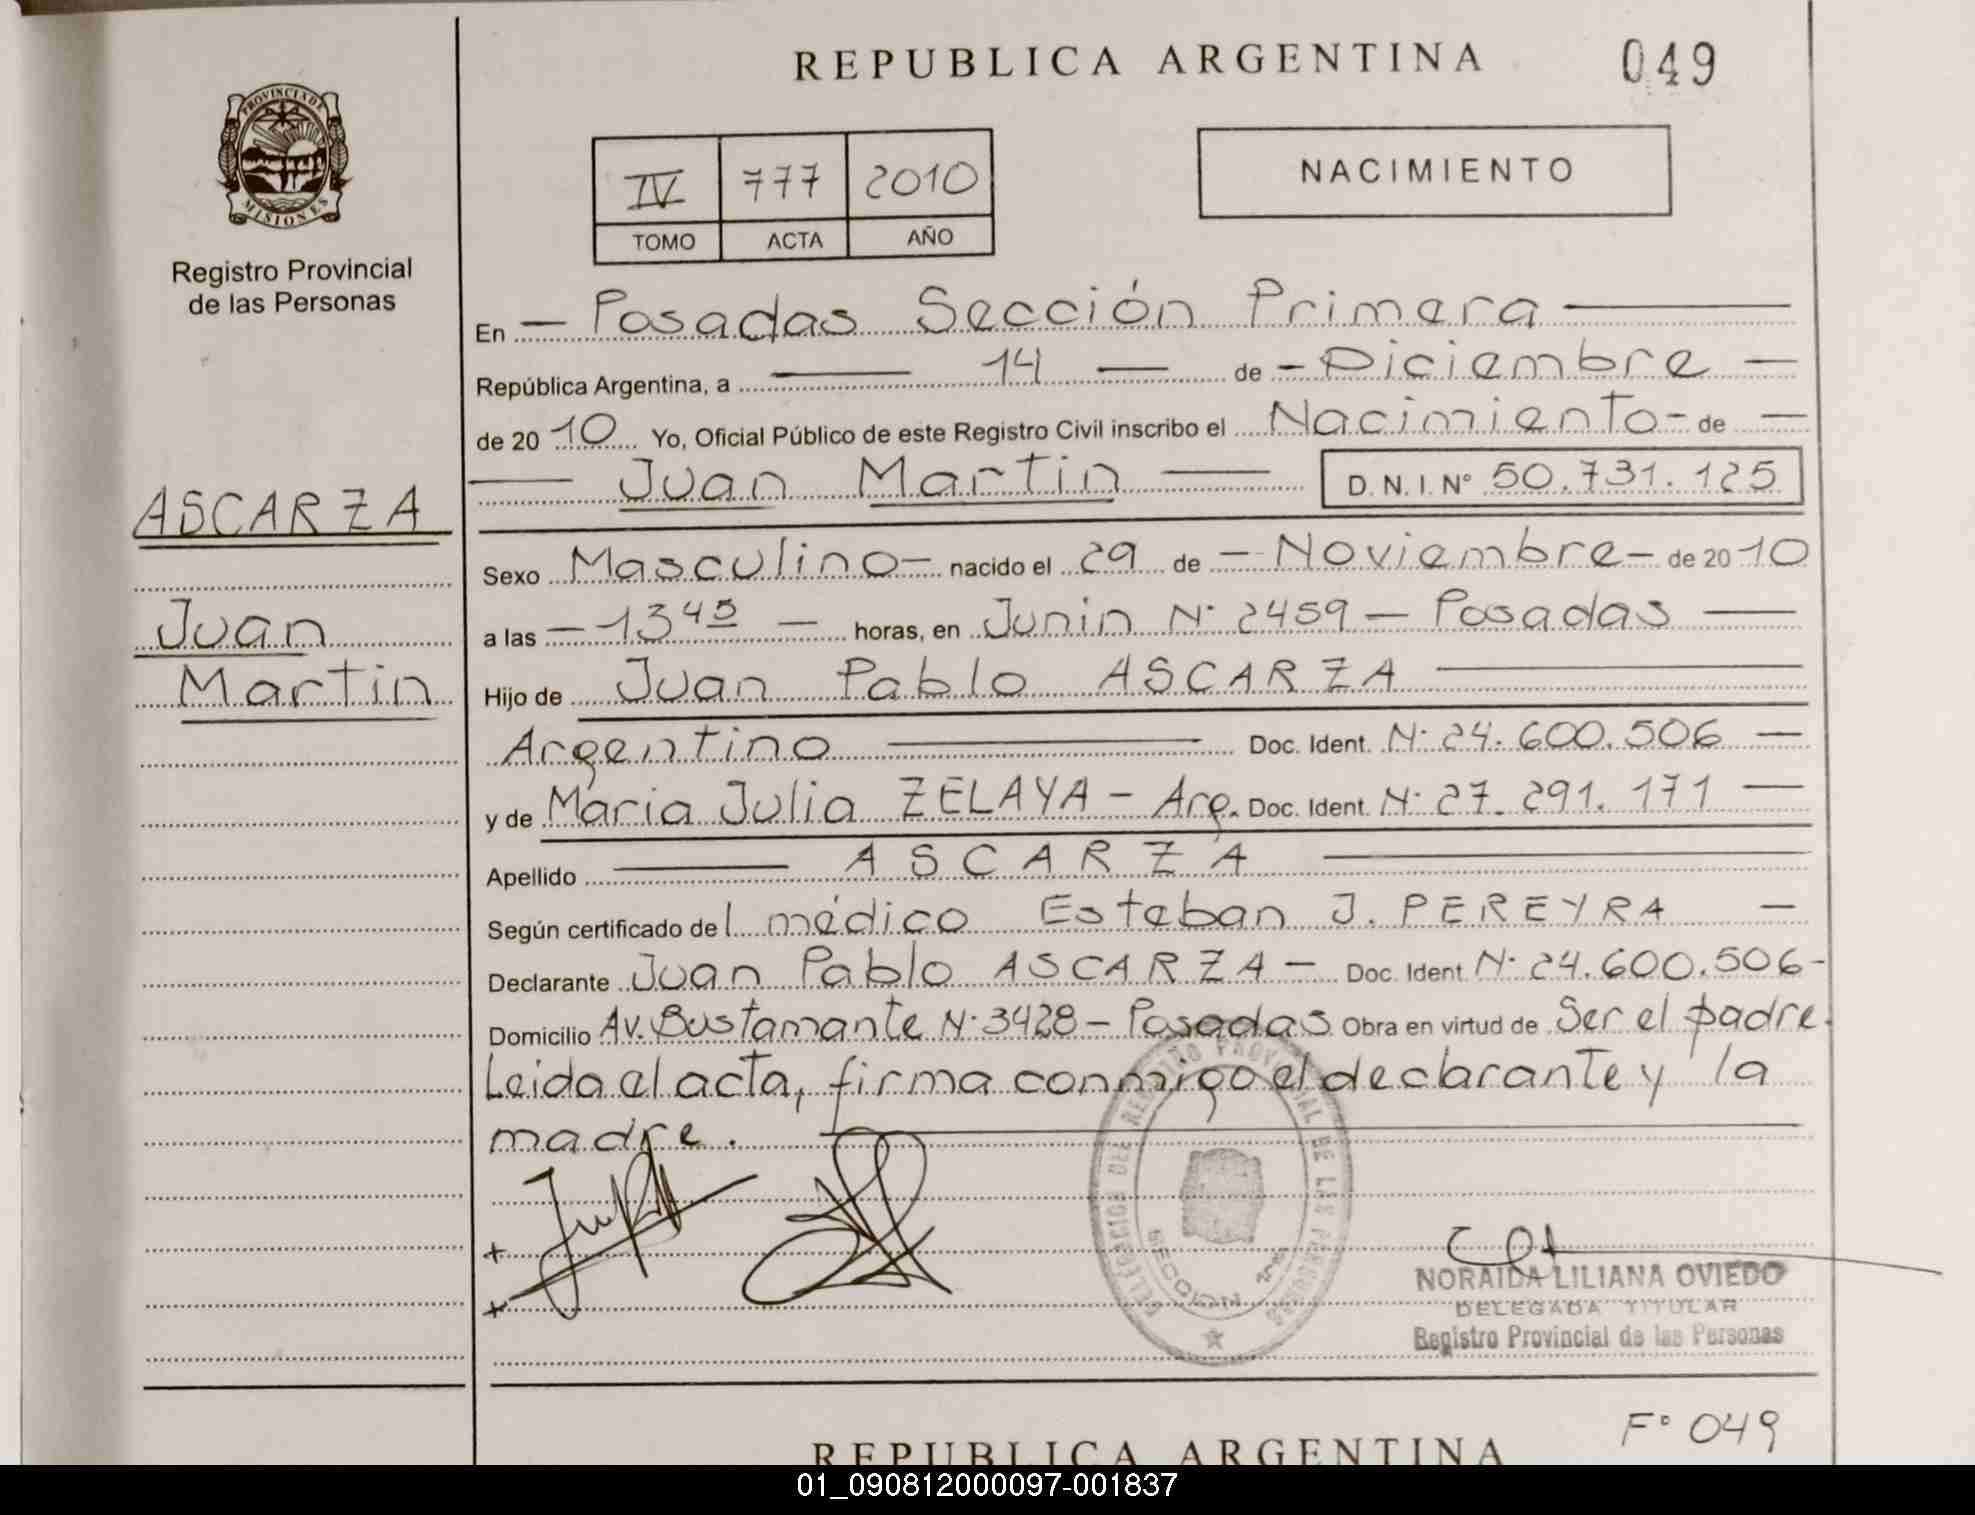 REPUBLICA ARGENTINA
049
PROVINCIA DE
MISIONES
Registro Provincial
de las Personas
IV 777 2010
TOMO ACTA AÑO
NACIMIENTO
En - Posadas Sección Primera
República Argentina, a 14 de - Diciembre -
de 2010 Yo, Oficial Público de este Registro Civil inscribo el Nacimiento - de -
Juan Martin D.N.I. Nº 50.731.125
ASCARZA
Juan
Martin
Sexo Masculino - nacido el 29 de - Noviembre - de 2010
a las - 13 45 - horas, en Junin N· 2459 - Posadas
Hijo de Juan Pablo ASCARZA
Argentino Doc. Ident. N· 24.600.506 -
y de Maria Julia ZELAYA - Arg. Doc. Ident. N· 27.291.171 -
Apellido ASCARZA
Según certificado del médico Esteban J. PEREYRA -
Declarante Juan Pablo ASCARZA - Doc. Ident. N· 24.600.506-
Domicilio Av. Bustamante N· 3428 - Posadas Obra en virtud de Ser el padre.
Leida el acta, firma conmigo el declarante y la
madre.
DELEGACION DEL REGISTRO PROVINCIAL DE LAS PERSONAS
SECCION
NORAIDA LILIANA OVIEDO
DELEGADA TITULAR
Registro Provincial de las Personas
Fº 049
REPUBLICA ARGENTINA
01_090812000097-001837